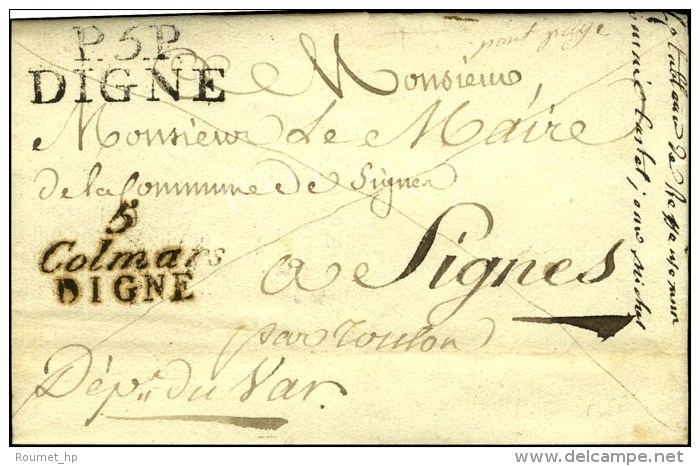 P.5.P.
DIGNE
port payé
Monsieur
Monsieur Le Maire
de la Commune de Signes
5
Colmars
DIGNE
a Signes
par Toulon
Dépt. du Var
Roumet_hp
www.delcampe.net